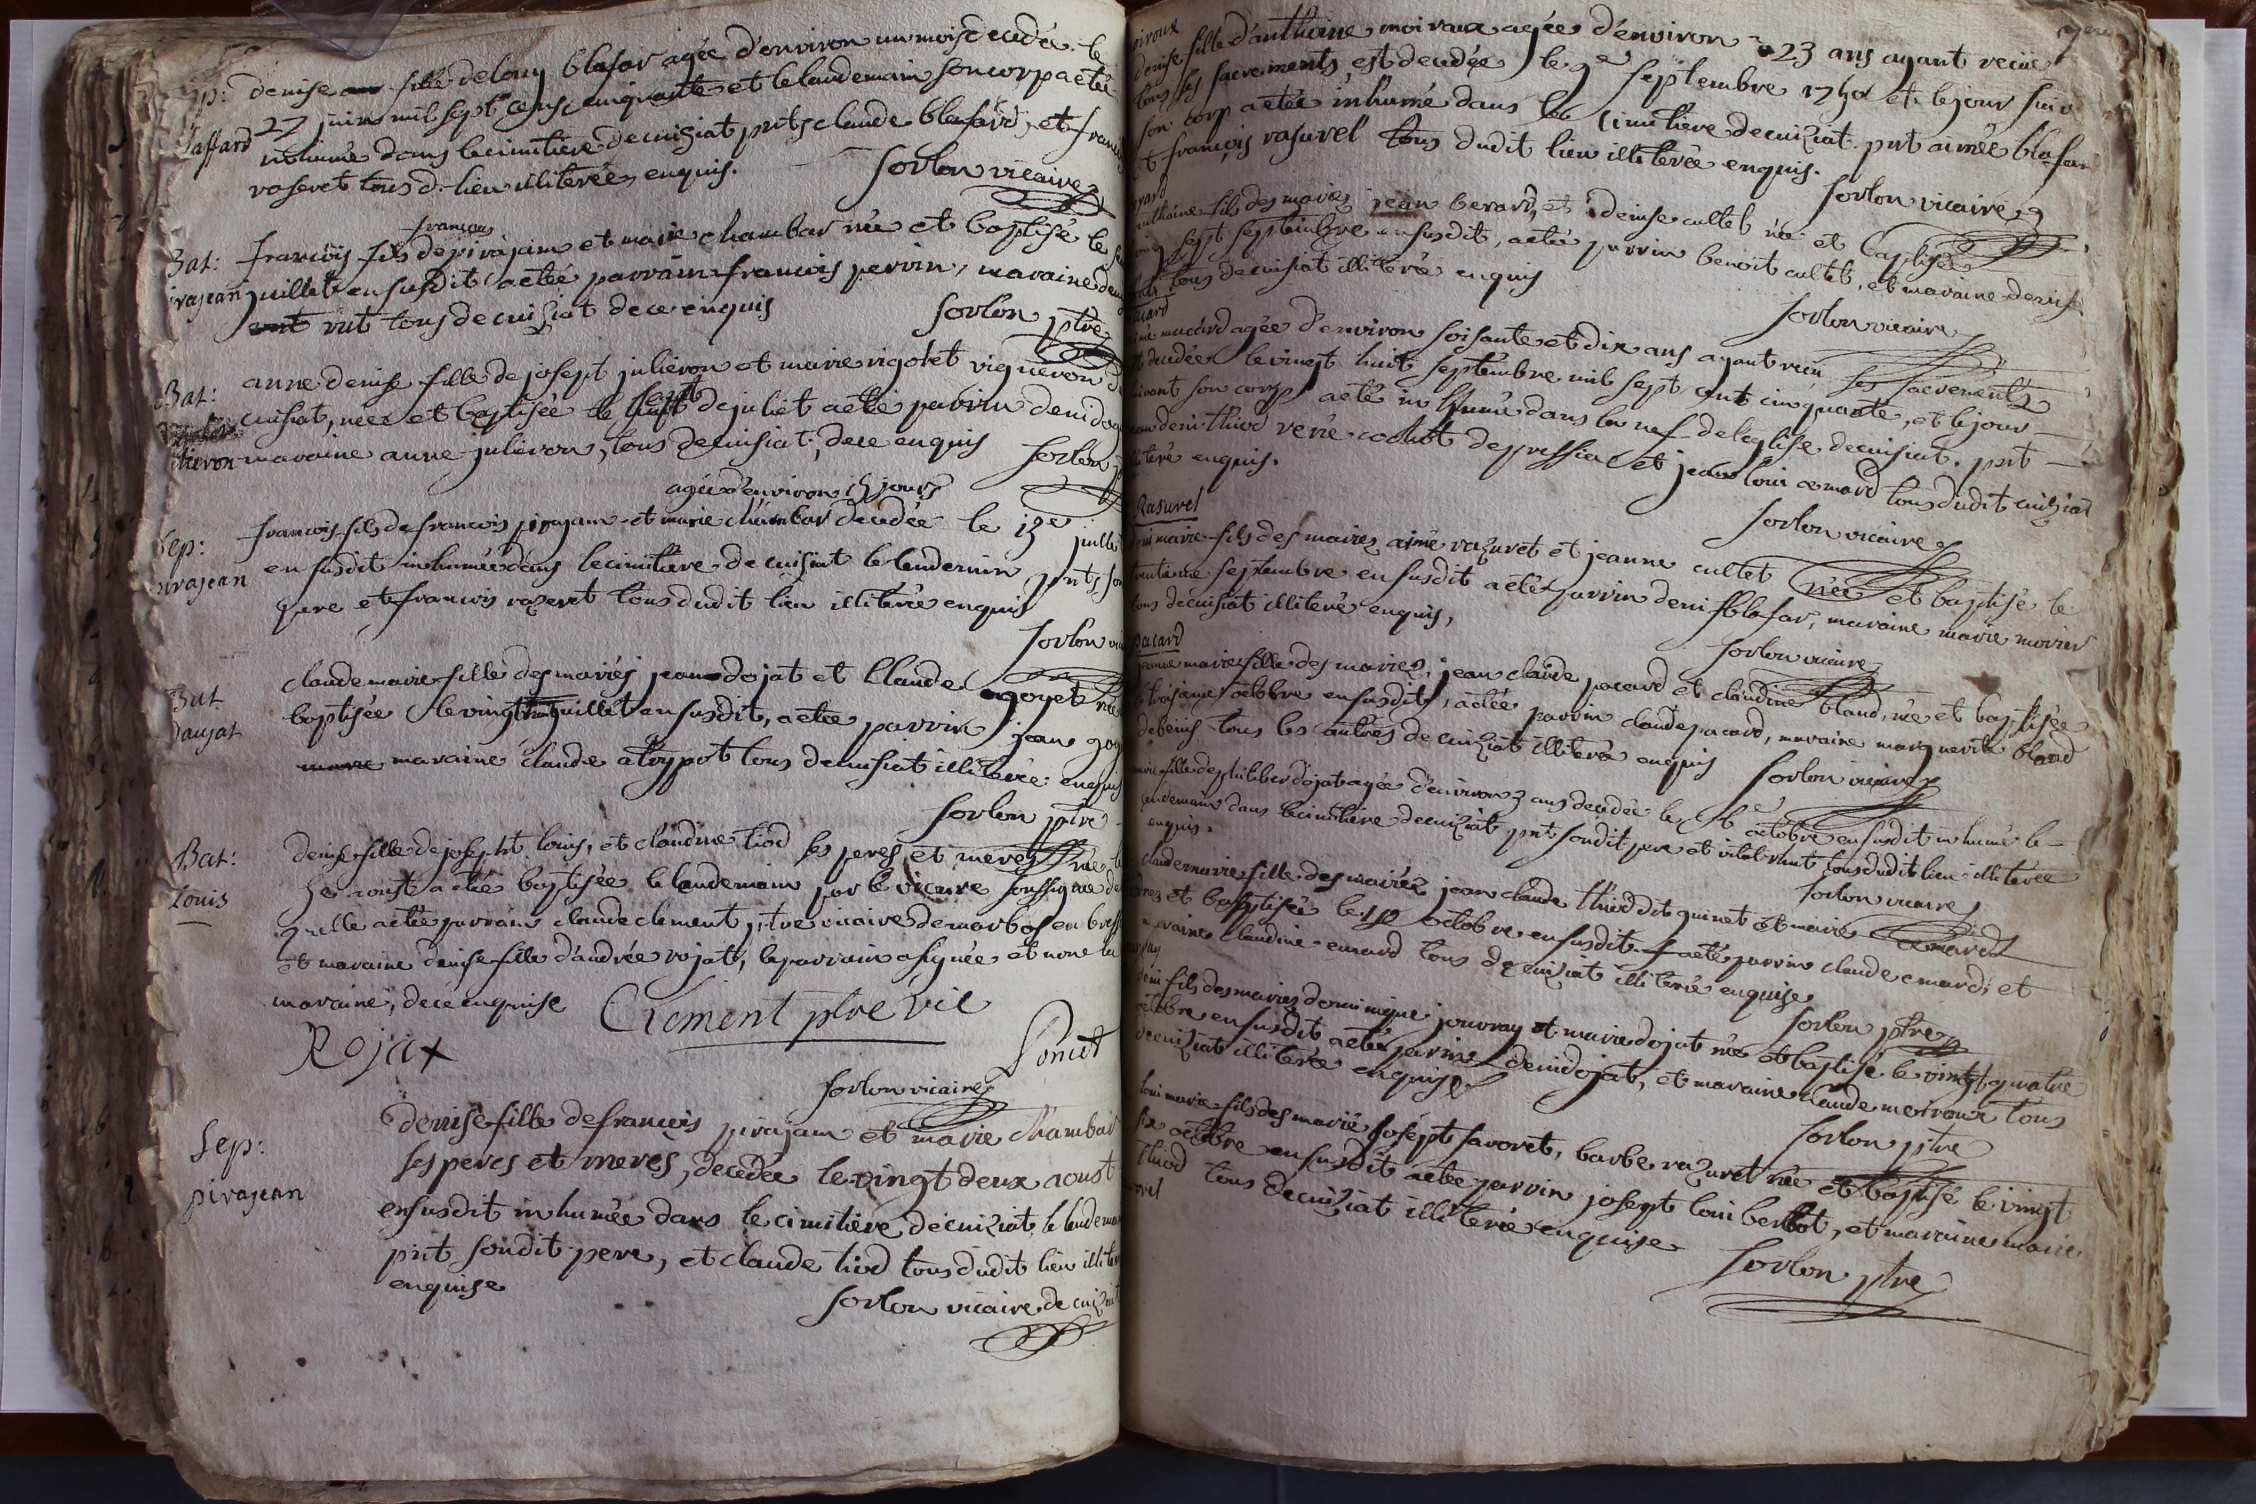 denise fille de louy blafar agée d'environ un mois decedée le
27 juin mil sept cens cinquante et le landemain son corp a eté
inhumé dans le cimitiere de cuisiat pnts claude blafard, et
raseret tous d. lieu illiterée, enquis.
Sorlon vicaire
Bat:
françois
françois fils de pirajam et marie chambar née et baptisé le
juillet en susdit a eté parrain francois pervin, maraine
tous de cuisiat de ce enquis
Sorlon ptre
Bat:
anne denise fille de josept julieron et marie rigolet vigneron
cuisiat, née et baptisée le de juliet a eté parrin deni
maraine anne julieron, tous de cuisiat, de ce enquis
Sorlon
agée d'environ jours
Sep:
pirajean
francois fils de francois pirajam et marie chambar decedée le 13e juillet
en susdit inhumée dans le cimitiere de cuisiat le landemin pnts, son
pere et francois razeret tous dudit lieu illiterée enquis
Sorlon
Bat
Daujat
claude marie fille des mariés jean dojat et Claude goyet née
baptisée le vingt juillet en susdit, a eté parrin jean
maraine claude tous de cuisiat illiterée: enquis
Sorlon ptre
Bat:
Louis
denise fille de josepht louis, et claudine tiod ses peres et meres née
aoust a été baptisée le landemain par le vicaire soussigné
quelle a etée parrain claude clement ptre vicaire de marbos en bresse
et maraine denise fille d'andrée rojat, le parrain a signée et none la
maraine, de ce enquise
Clement ptre vic
Rojat
Poncet
Sorlon vicaire
Sep:
pirajean
denise fille de francois pirajam et marie chambar
ses peres et meres, decedée le vingt deux aoust
en susdit inhumée dans le cimitiere de cuiziat le
pnt sondit pere, et claude tiod tous dudit lieu
enquise
Sorlon vicaire de cuiziat
denise fille d'anthoine moiroux agée d'environ 23 ans ayant recüe
tous les sacrements, est decedée le 9e septembre 1750 et le jour
son corp a eté inhumé dans le cimitiere de cuiziat. pnt aimée blafar
et françois rasurel tous dudit lieu illiterée enquis.
Sorlon vicaire
anthoine fils des mariez jean berard, et denise cultet né et baptisée
sept septembre en susdit, a etée parrin benoit cultet, et maraine denise
tous de cuisiat illiterée enquis
Sorlon vicaire
macard agée d'environ soisante et dix ans ayant recu ses sacrements
decedée le vingt huit septembre mil sept cent cinquante, et le jour
suivant son corp a eté inhumé dans la nef de l'eglise de cuisiat. pnt
deni thiod rené cochot de pressia et jean loui emard tous dudit cuiziat
illiteré enquis.
Sorlon vicaire
Rasurel
marie fils des mariez aimé razuret et jeanne cultet née et baptisé le
trentieme septembre en susdit a eté parrin deni blafar, maraine marie morier
tous de cuisiat illiteré enquis,
Sorlon vicaire
pacard
jeanne marie fille des mariez jean claude pacard et claudine bland, née et baptisée
troisieme octobre en susdit, a etée parrin claude pacard, maraine marguerite bland
tous les autres de cuiziat illiterée enquis
Sorlon vicaire
fille de philiber dojat agée d'environ 3 ans decedée le octobre en susdit inhumé le
landemain dans le cimitiere de cuiziat pnt sondit pere et tous dudit lieu illiterée
enquis.
Sorlon vicaire
claude marie fille des mariez jean claude thiod dit guinet et marie emard
née et baptisée le 10 octobre en susdit a eté parrin claude emard, et
maraine claudine emard tous de cuiziat illiterée enquise
Sorlon ptre
deni fils des mariez dominique jouvray et marie dojat née et baptisé le vingt quatre
octobre en susdit a etée parrin deni dojat, et maraine claude moiroux tous
de cuiziat illiterée enquise
Sorlon ptre
loui marie fils des marié josept favoret, barbe razuret née et baptisé le vingt
six octobre en susdit a etée parrin josept loui berlot, et maraine marie
thiod tous de cuiziat illiterée enquise
Sorlon ptre